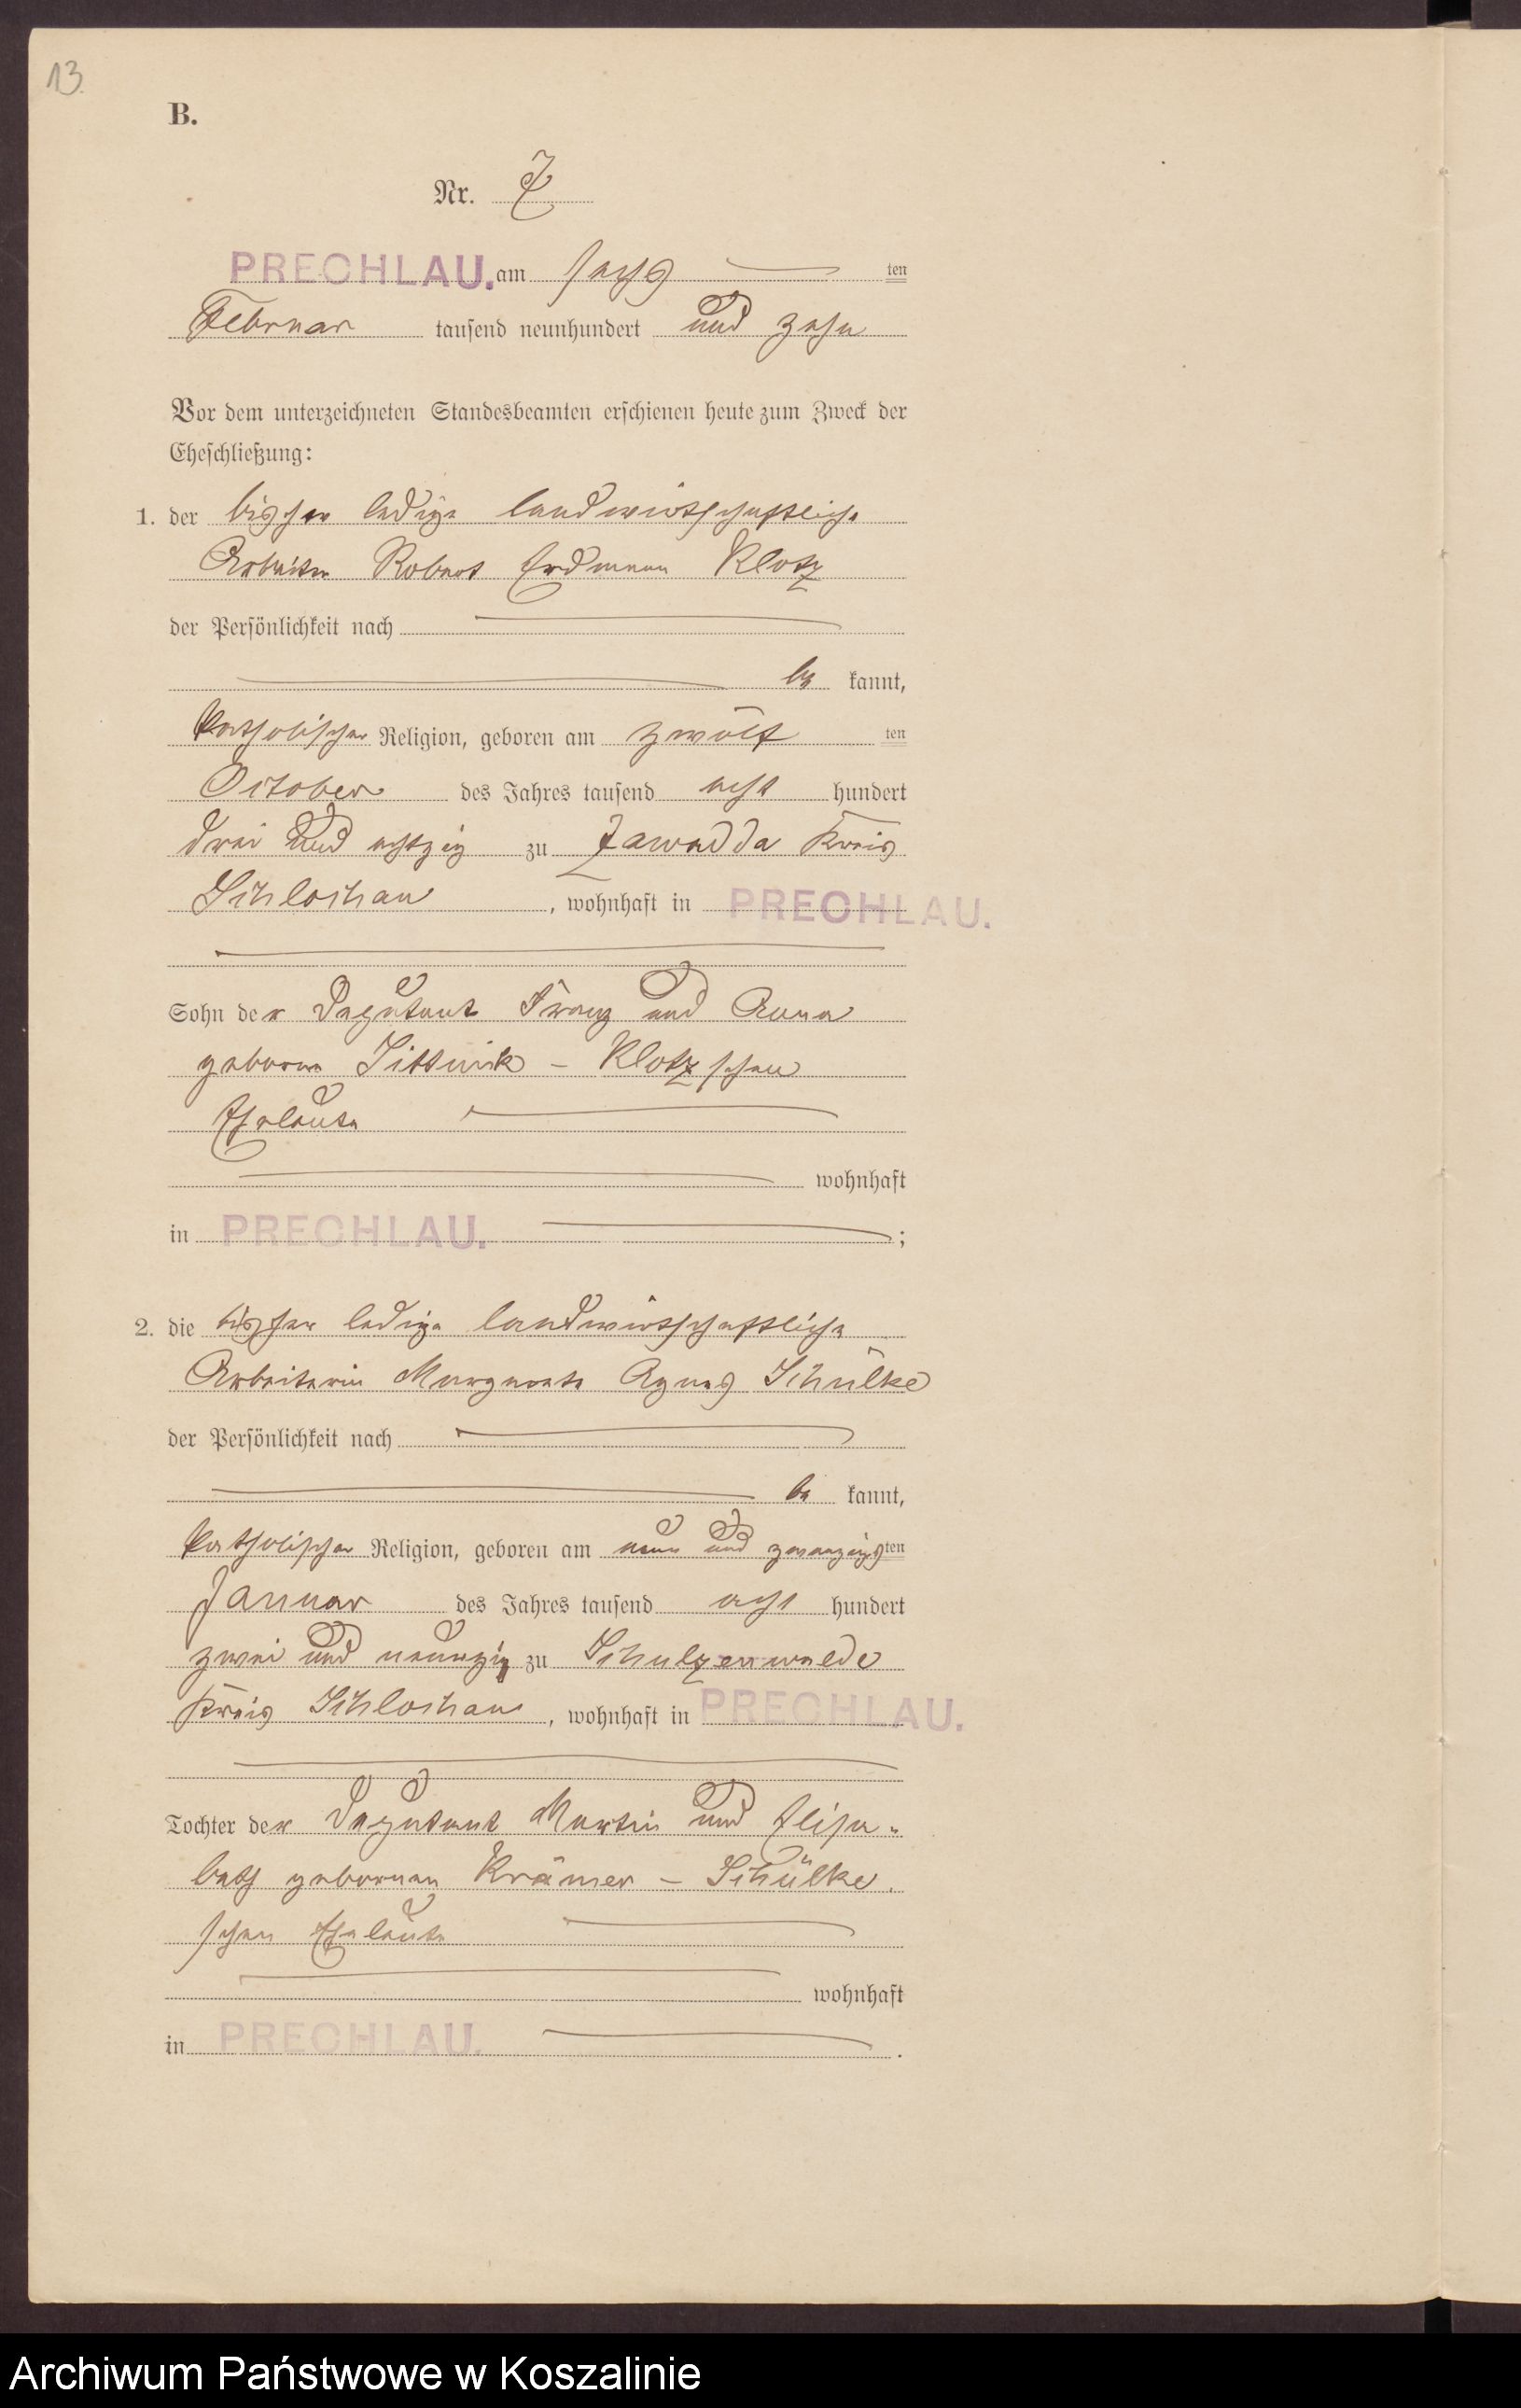 13.
B.
Nr. 7
PRECHLAU. am sechs ten
Februar tausend neunhundert und zehn
Vor dem unterzeichneten Standesbeamten erschienen heute zum Zweck der
Eheschließung:
1. der bisher ledige landwirtschaftliche
Arbeiter Robert Erdmann Klotz
der Persönlichkeit nach
be kannt,
katholischer Religion, geboren am zwölf ten
October des Jahres tausend acht hundert
drei und achtzig zu Zawadda Kreis
Schlochau, wohnhaft in PRECHLAU.
Sohn der Franz und Anna
geborene - Klotz schen
Eheleute
wohnhaft
in PRECHLAU. ;
2. die bisher ledige landwirtschaftliche
Arbeiterin Margarete Agnes Schülke
der Persönlichkeit nach
be kannt,
katholischer Religion, geboren am neun und zwanzigsten
Januar des Jahres tausend acht hundert
zwei und neunzig zu Schulzenwalde
Kreis Schlochau, wohnhaft in PRECHLAU.
Tochter der Martin und Elisa-
beth geborenen Krämer - Schülke.
schen Eheleute
wohnhaft
in PRECHLAU. .
Archiwum Państwowe w Koszalinie